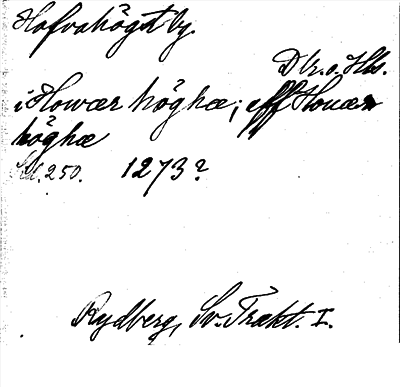 Hofvahögst by.
Dlr. o. Hls.
i Howær höghæ; eff Houær
höghæ
250. 1273?
Rydberg, Sv. Trakt. I.